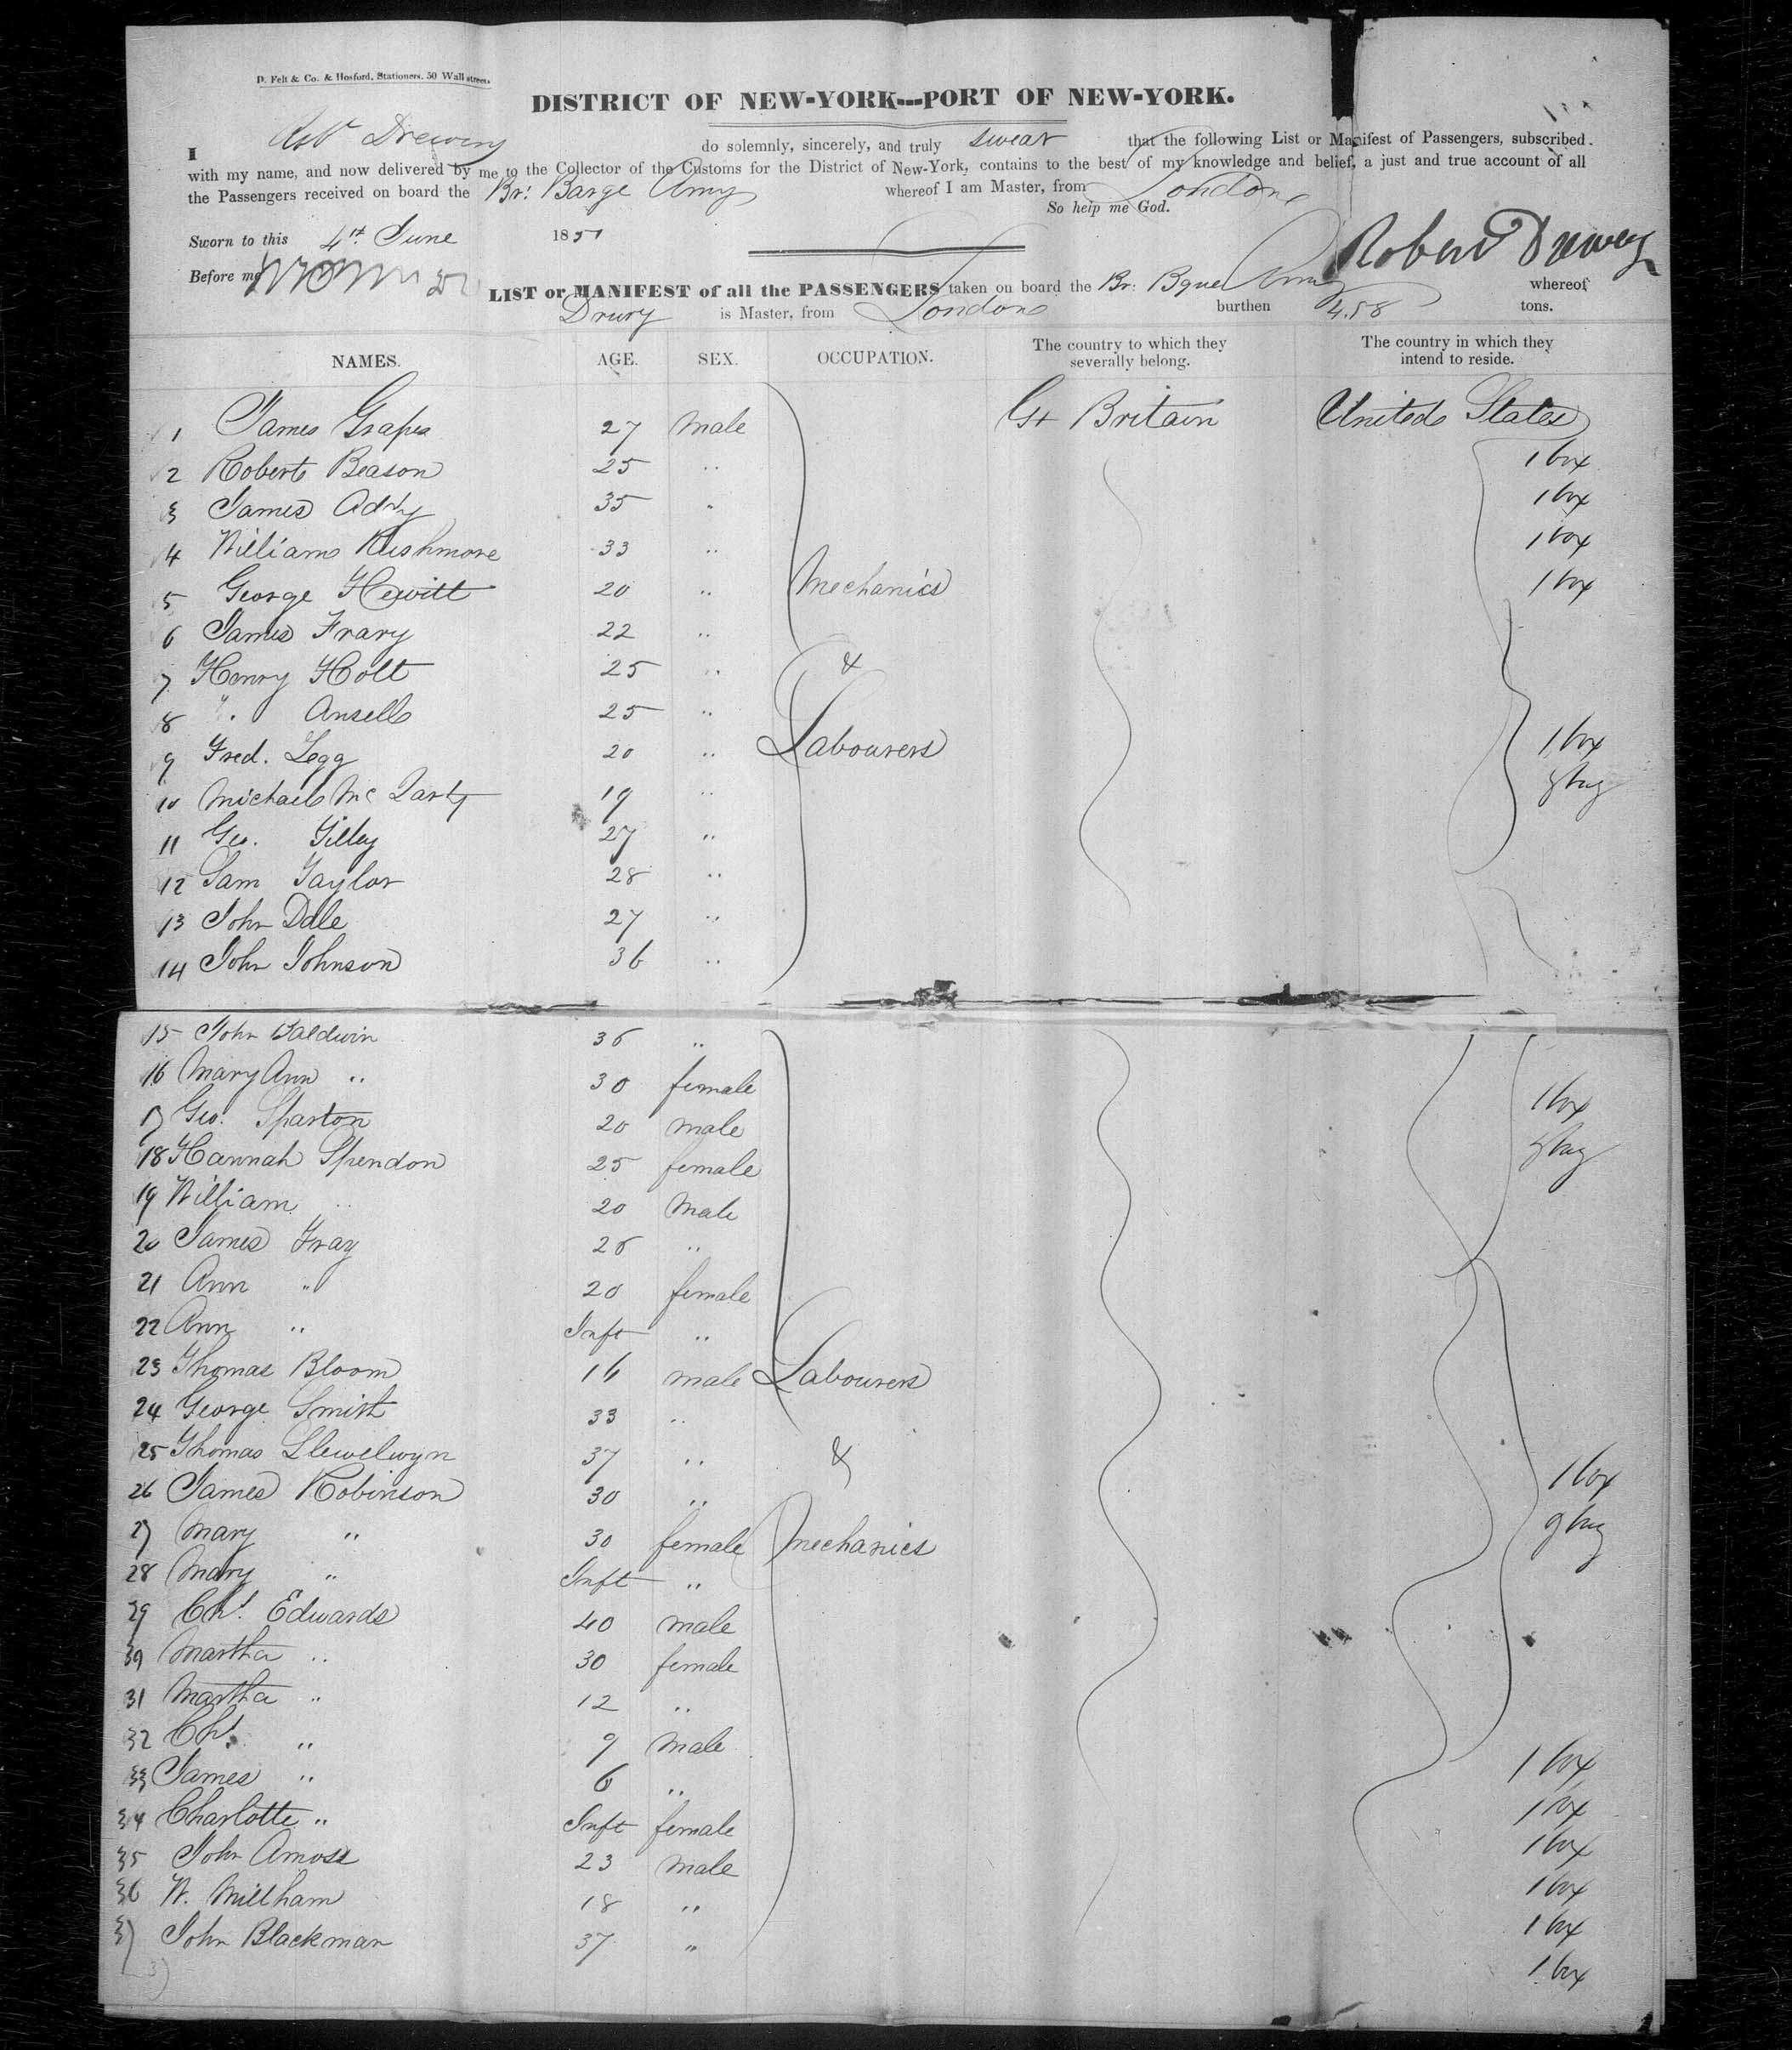 D. Felt & Co. & Hosford, Stationers, 50 Wall street.
DISTRICT OF NEW-YORK---PORT OF NEW-YORK.
I Robt Drewery do solemnly, sincerely, and truly swear that the following List or Manifest of Passengers, subscribed
with my name, and now delivered by me to the Collector of the Customs for the District of New-York, contains to the best of my knowledge and belief, a just and true account of all
the Passengers received on board the Br: Barge Amy whereof I am Master, from London
So help me God.
Sworn to this 4th June 1851
Robert Drewery
Before me
LIST or MANIFEST of all the PASSENGERS taken on board the Br: Bque Amy whereof
Drury is Master, from London burthen 458 tons.
NAMES. AGE. SEX. OCCUPATION. The country to which they severally belong. The country in which they intend to reside.
1 James Grapes 27 male Gt Britain United States
2 Robert Beason 25 " 1 box
3 James Addy 35 " 1 box
4 William Rushmore 33 " 1 box
5 George Hewitt 20 " Mechanics 1 box
6 James Frary 22 "
7 Henry Holt 25 " &
8 " Ansell 25 "
9 Fred. Legg 20 " Labourers 1 box
10 Michael Mc 19 "
11 Geo. Gilley 27 "
12 Sam Taylor 28 "
13 John Dale 27 "
14 John Johnson 36 "
15 John Baldwin 36 "
16 Mary Ann " 30 female
17 Geo. Sparton 20 male 1 box
18 Hannah Spendon 25 female
19 William " 20 male
20 James Gray 26 "
21 Ann " 20 female
22 Ann " Inft "
23 Thomas Bloom 16 male Labourers
24 George Smith 33 "
25 Thomas Llewelwyn 37 " &
26 James Robinson 30 " 1 box
27 Mary " 30 female mechanics
28 Mary " Inft "
29 Chs. Edwards 40 male
30 Martha " 30 female
31 Martha " 12 "
32 Chs. " 9 male
33 James " 6 " 1 box
34 Charlotte " Inft female 1 box
35 John Amose 23 male 1 box
36 W. Millham 18 " 1 box
37 John Blackman 37 " 1 box
1 box